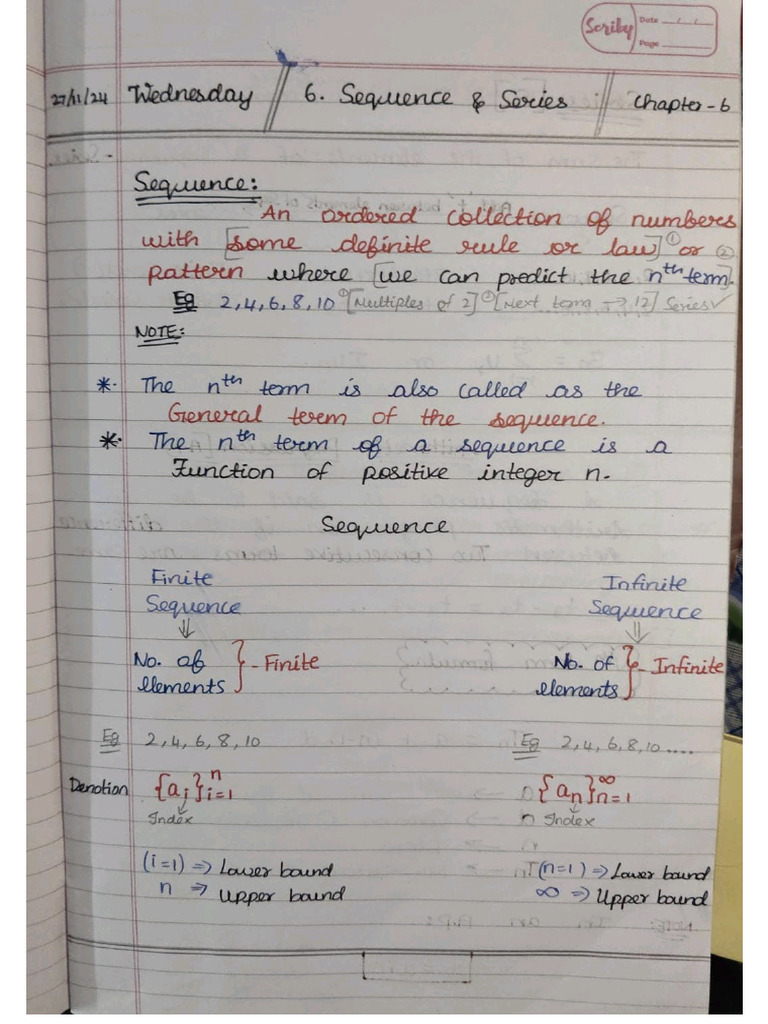 Scriby Date / /
Page
27/11/24 Wednesday 6. Sequence & Series Chapter-6
Sequence:
An ordered collection of numbers
with [some definite rule or law]① or ②
pattern where [we can predict the nᵗʰ term].
Eg 2, 4, 6, 8, 10 ①[Multiples of 2] ②[Next term → 12] Series✓
NOTE:
*. The nᵗʰ term is also called as the
General term of the sequence.
*. The nᵗʰ term of a sequence is a
Function of positive integer n.
Sequence
Finite Infinite
Sequence Sequence
⇓ ⇓
No. of } - Finite No. of } - Infinite
elements elements
Eg 2, 4, 6, 8, 10 Eg 2, 4, 6, 8, 10 ....
Denotion {aᵢ}ⁿᵢ₌₁ {aₙ}^∞ₙ₌₁
Index Index
(i=1) => Lower bound (n=1) => Lower bound
n => Upper bound ∞ => Upper bound